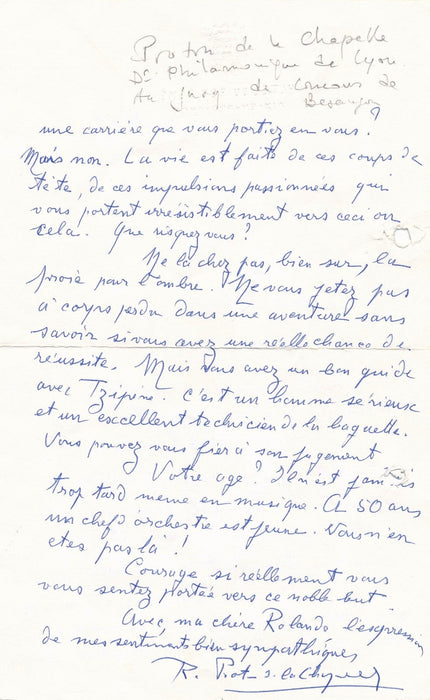 Proton de la Chapelle
Dr Philarmonique de Lyon.
Au jury de Concours de
Besançon
une carrière que vous portiez en vous?
Mais non. La vie est faite de ces coups de
tête, de ces impulsions passionnées qui
vous portent irrésistiblement vers ceci ou
cela. Que risquez vous?
Ne lâchez pas, bien sur, la
proie pour l'ombre. Ne vous jetez pas
à corps perdu dans une aventure sans
savoir si vous avez une réelle chance de
réussite. Mais vous avez un bon guide
avec Tzipine. C'est un homme sérieux
et un excellent technicien de la baguette.
Vous pouvez vous fier à son jugement
Votre age? Il n'est jamais
trop tard meme en musique. A 50 ans
un chef d'orchestre est jeune. Vous n'en
etes pas là!
Courage si réellement vous
vous sentez portée vers ce noble but.
Avec, ma chère Rolande l'expression
de mes sentiments bien sympathiques
R.